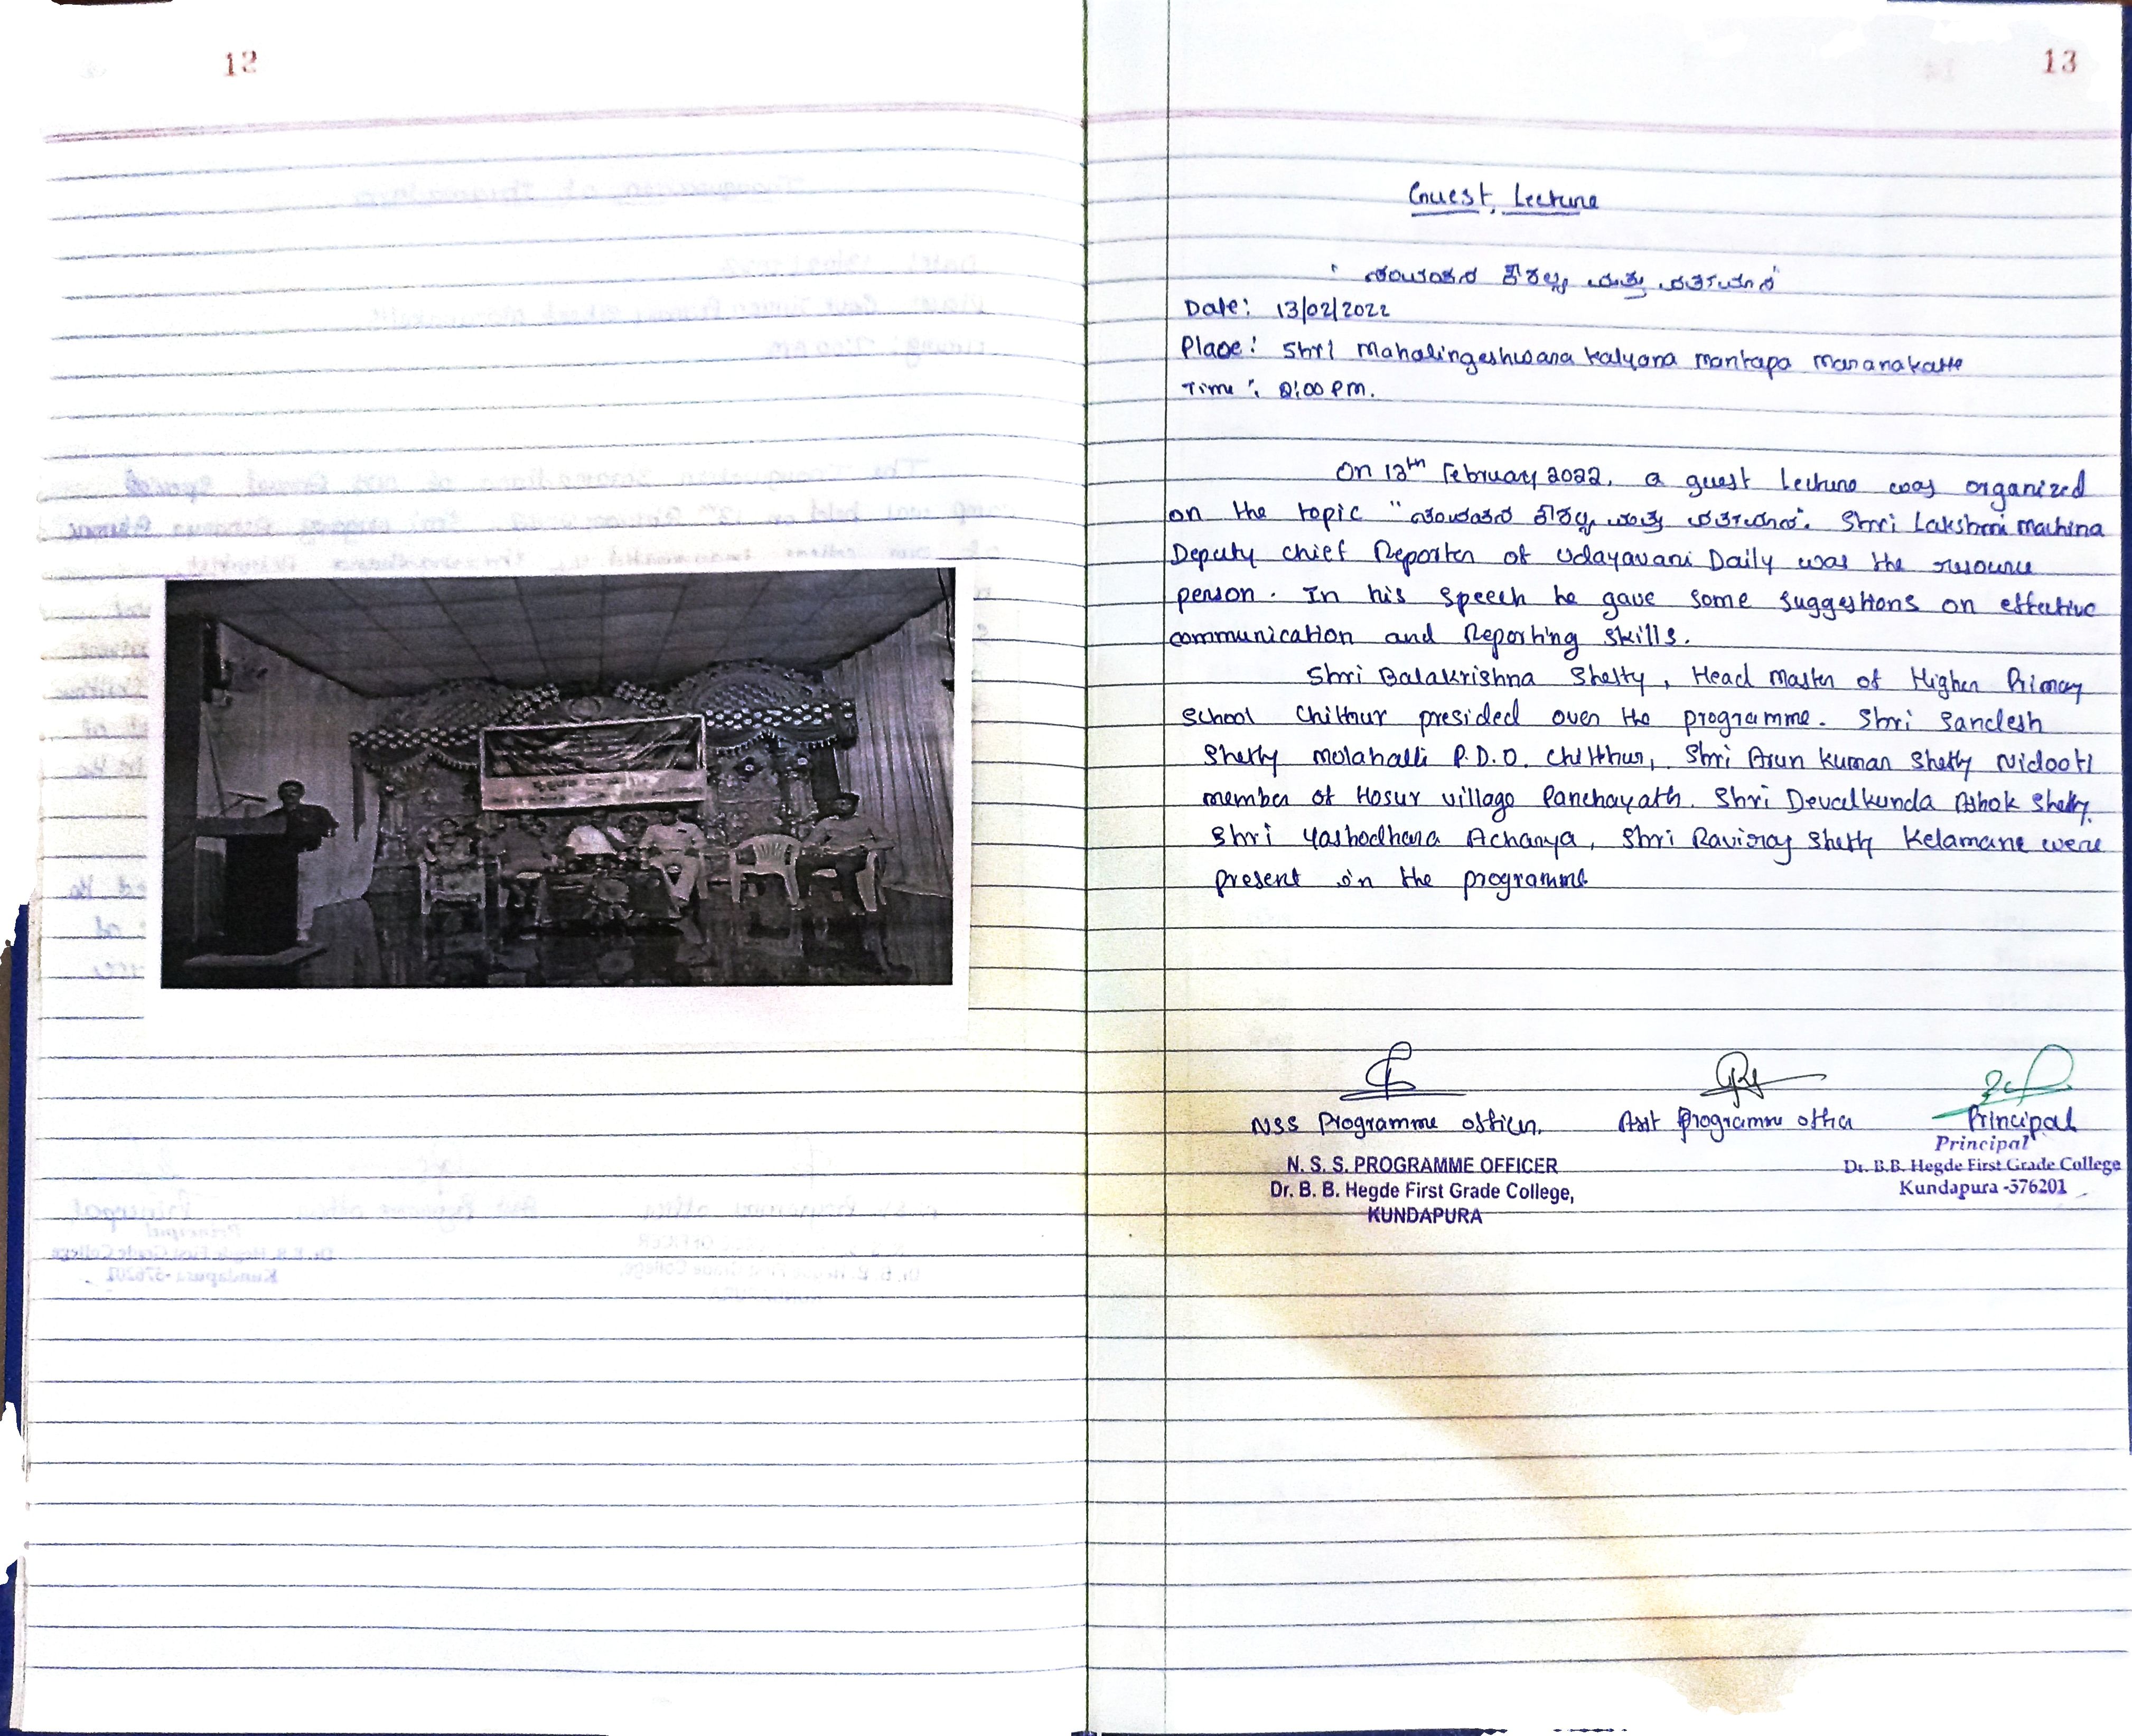 12
13
Guest Lecture
Date: 13/02/2022
Place: Shri Mahalingeshwara Kalyana Mantapa Maranakatte
Time: 2:00 PM.
On 13th February 2022, a guest Lecture was organized
on the topic " ". Shri Lakshmi Machina
Deputy chief Reporter of Udayavani Daily was the resource
person. In his speech he gave some suggestions on effective
communication and Reporting skills.
Shri Balakrishna Shetty, Head Master of Higher Primary
School Chittur presided over the programme. Shri Sandesh
Shetty Molahalli P.D.O. Chitthur, Shri Arun Kumar Shetty Nidooti
member of Hosur village Panchayath. Shri Devalkunda Ashok Shetty.
Shri Yashodhara Acharya, Shri Raviraj Shetty Kelamane were
present in the programme
NSS Programme officer. Asst Programme office Principal
Principal
N. S. S. PROGRAMME OFFICER
Dr. B.B. Hegde First Grade College
Dr. B. B. Hegde First Grade College,
Kundapura -576201
KUNDAPURA